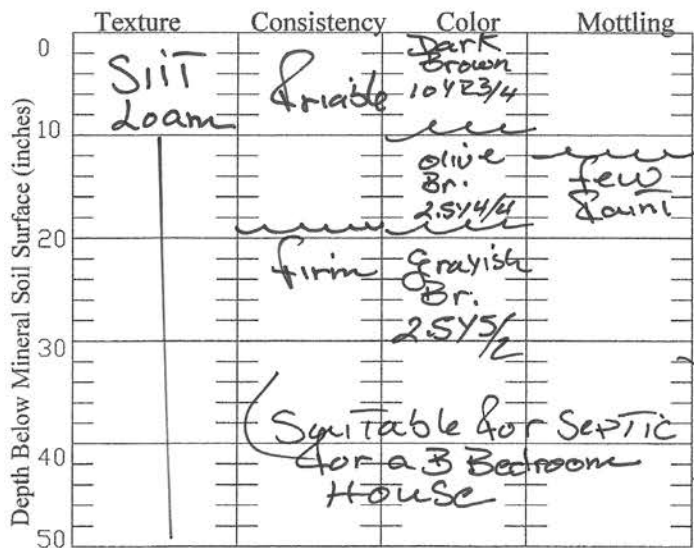 Texture Consistency Color Mottling
Depth Below Mineral Soil Surface (inches)
0
10
20
30
40
50
Silt
Loam
friable
firm
Dark
Brown
10YR3/4
olive
Br.
2.5Y4/4
grayish
Br.
2.5Y5/2
few
faint
Suitable for Septic
for a 3 Bedroom
House